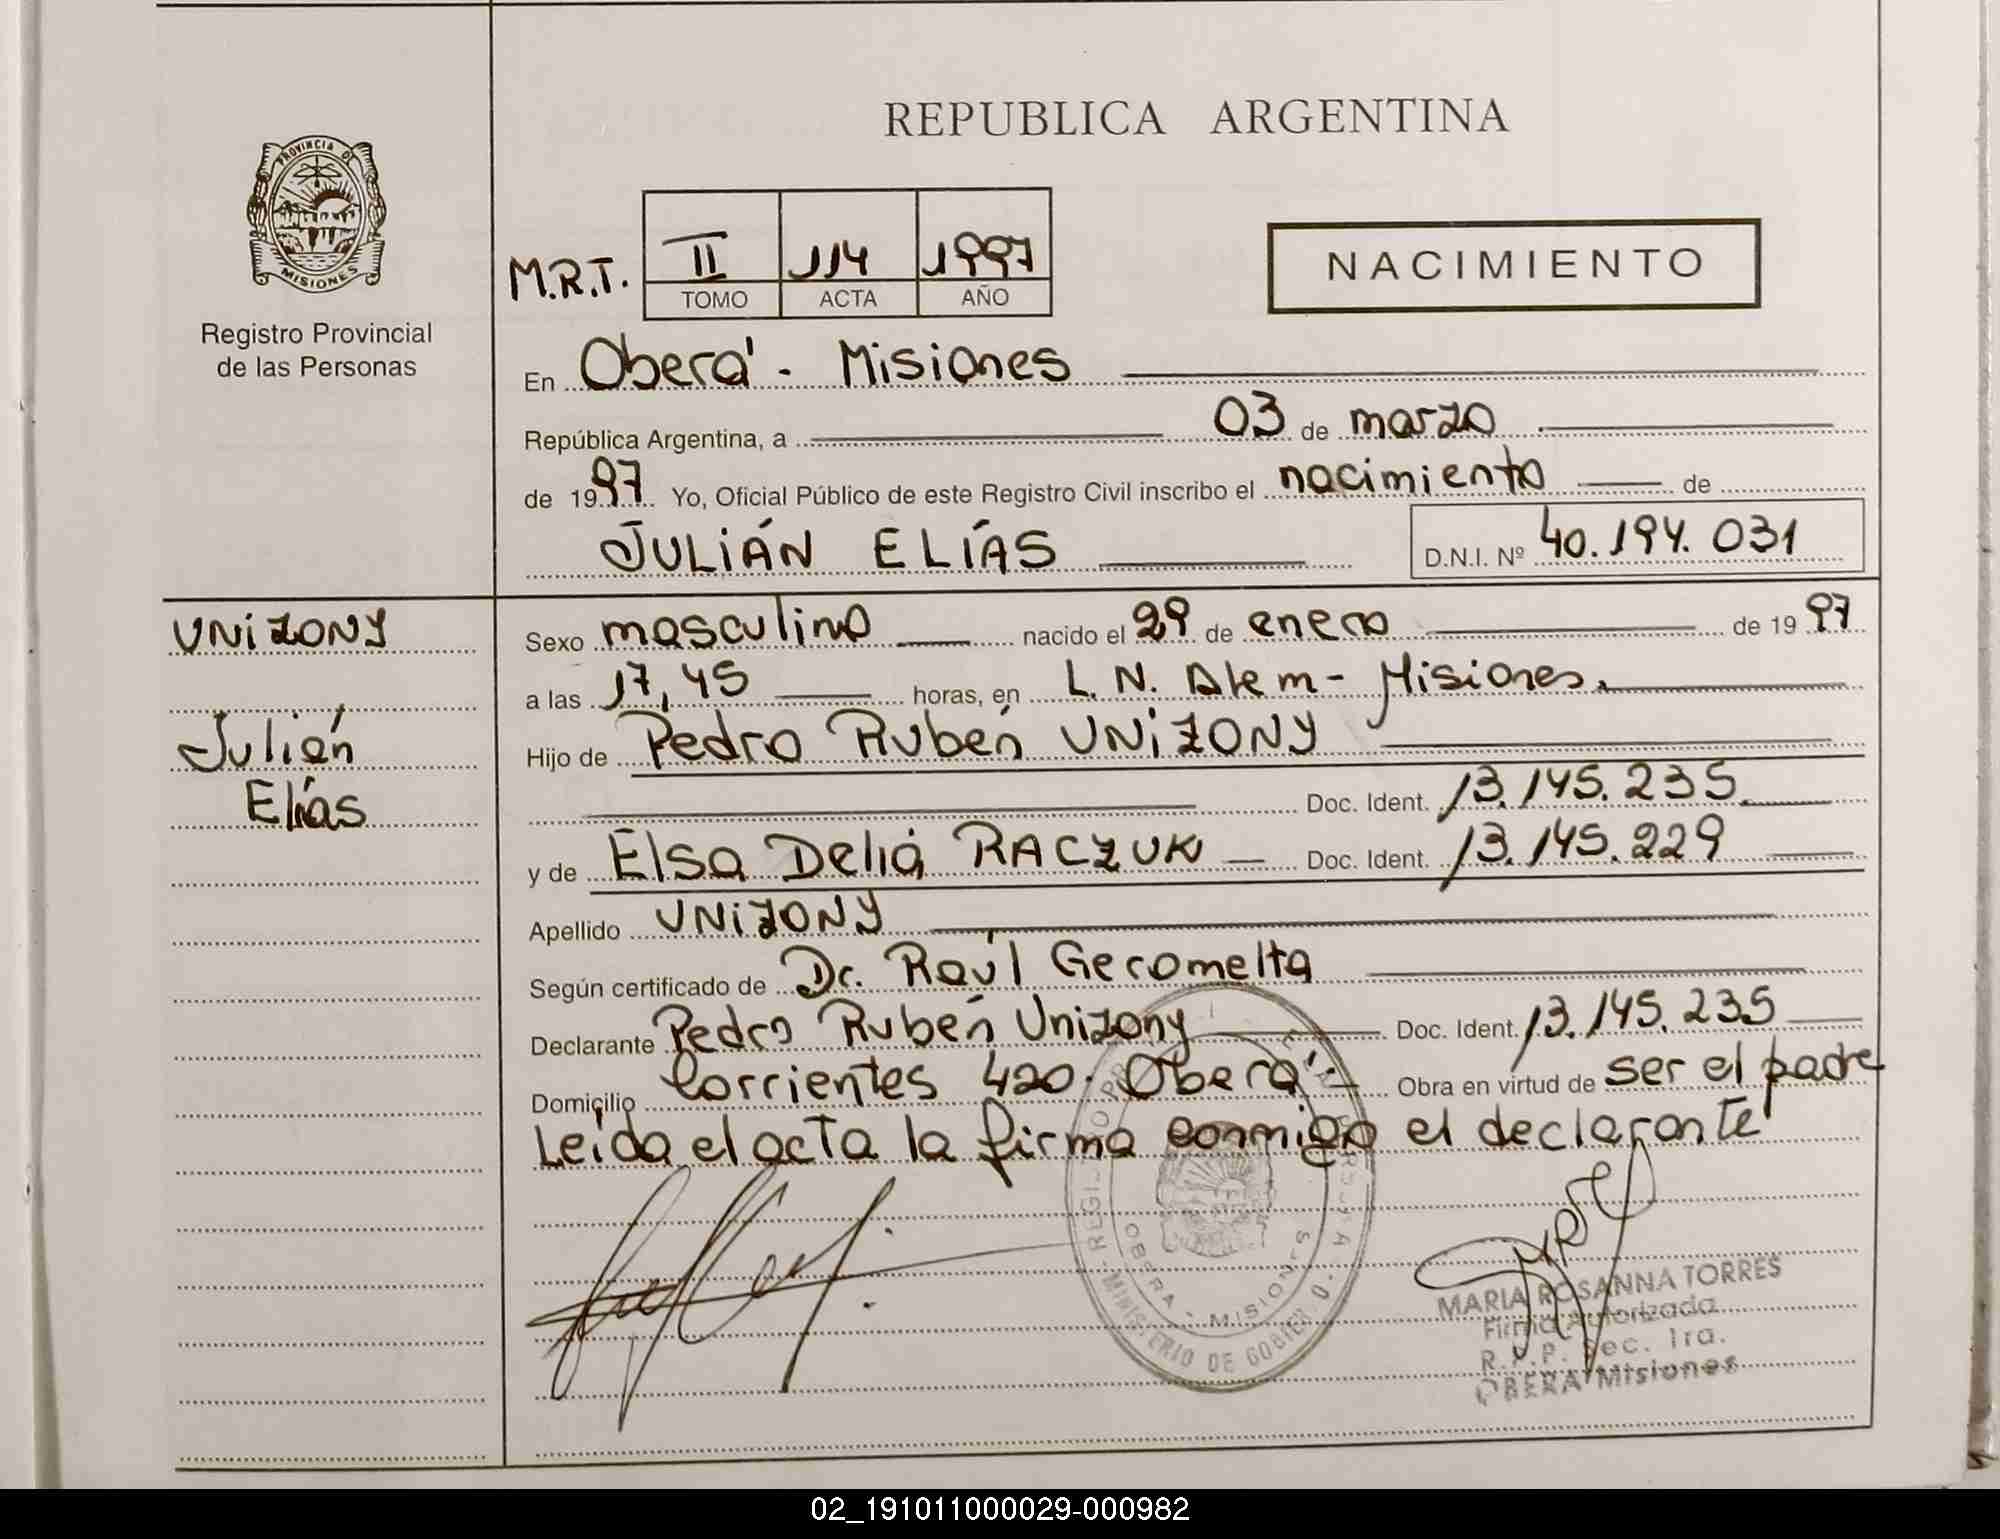 REPUBLICA ARGENTINA
PROVINCIA DE
MISIONES
Registro Provincial
de las Personas
M.R.T.
II 114 1997
TOMO ACTA AÑO
NACIMIENTO
En Oberá - Misiones
República Argentina, a 03 de marzo
de 1997 Yo, Oficial Público de este Registro Civil inscribo el nacimiento de
JULIÁN ELÍAS D.N.I. Nº 40.194.031
UNIZONY
Julián
Elías
Sexo masculino nacido el 29 de enero de 1997
a las 17,45 horas, en L. N. Alem - Misiones.
Hijo de Pedro Rubén UNIZONY
Doc. Ident. 13.145.235
y de Elsa Delia RACZUK Doc. Ident. 13.145.229
Apellido UNIZONY
Según certificado de Dr. Raúl Geromelta
Declarante Pedro Rubén Unizony Doc. Ident. 13.145.235
Domicilio Corrientes 420. Oberá - Obra en virtud de ser el padre
Leída el acta la firma conmigo el declarante
OBERA - MISIONES
MINISTERIO DE GOBIERNO
MARIA ROSANNA TORRES
Firma Autorizada
R.P.P. Sec. 1ra.
OBERA Misiones
02_191011000029-000982